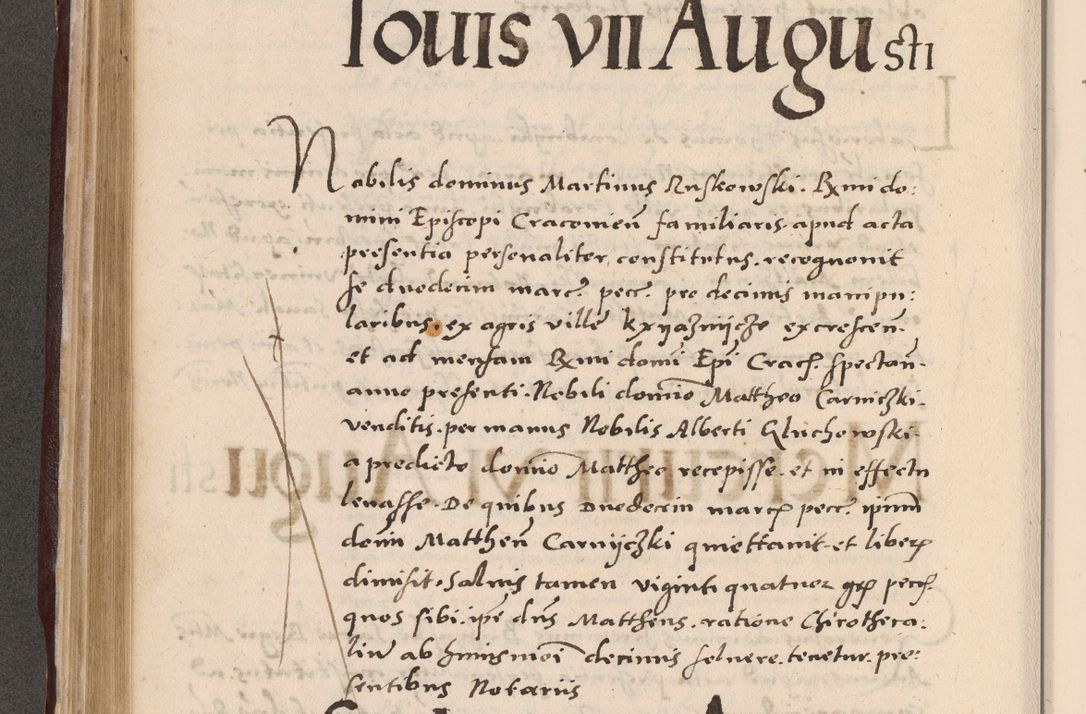 Iouis VII Augusti
Nabilis dominus Martinus Ruskowski. Rxmi do:
mini Episcopi Cracovien̄ familiaris. apud acta
presentia personaliter constitutus. recognovit
se duodecim marc. pecc. pro decimis manipu:
laribus. ex agris ville Kxyąznijcze excrescen̄.
et ad mensam Rxmi domī Epī Crac. spectan̄.
anno presenti. Nobili domīo Mattheo Carniczki.
venditis. per manus Nobilis Alberti Gluchowski.
a predicto domīo Mattheo recepisse. et in effectu
levasse. De quibus Duodecim marc. pecc. ipsum
domī Matthеū Carnijczki quiettavit. et liber
dimisit. Salvis tamen viginti quatuor gr. pecc.
quos sibi. ipe dn̄s Mattheus. ratione Chirothera:
liū ab hmismōi decimis solvere. tenetur. pre:
sentibus Notariis